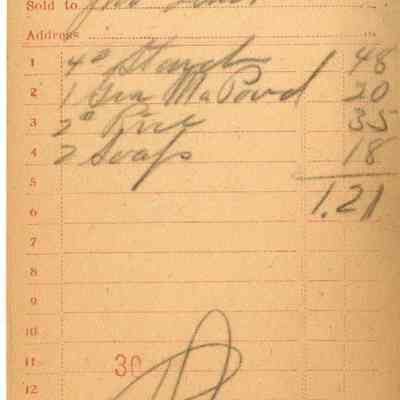 Sold to
Address
1 4# Starch 48
2 1 Gra Ma Powd 20
3 2# Rice 35
4 2 Soaps 18
5
6 1.21
7
8
9
10
11 30
12